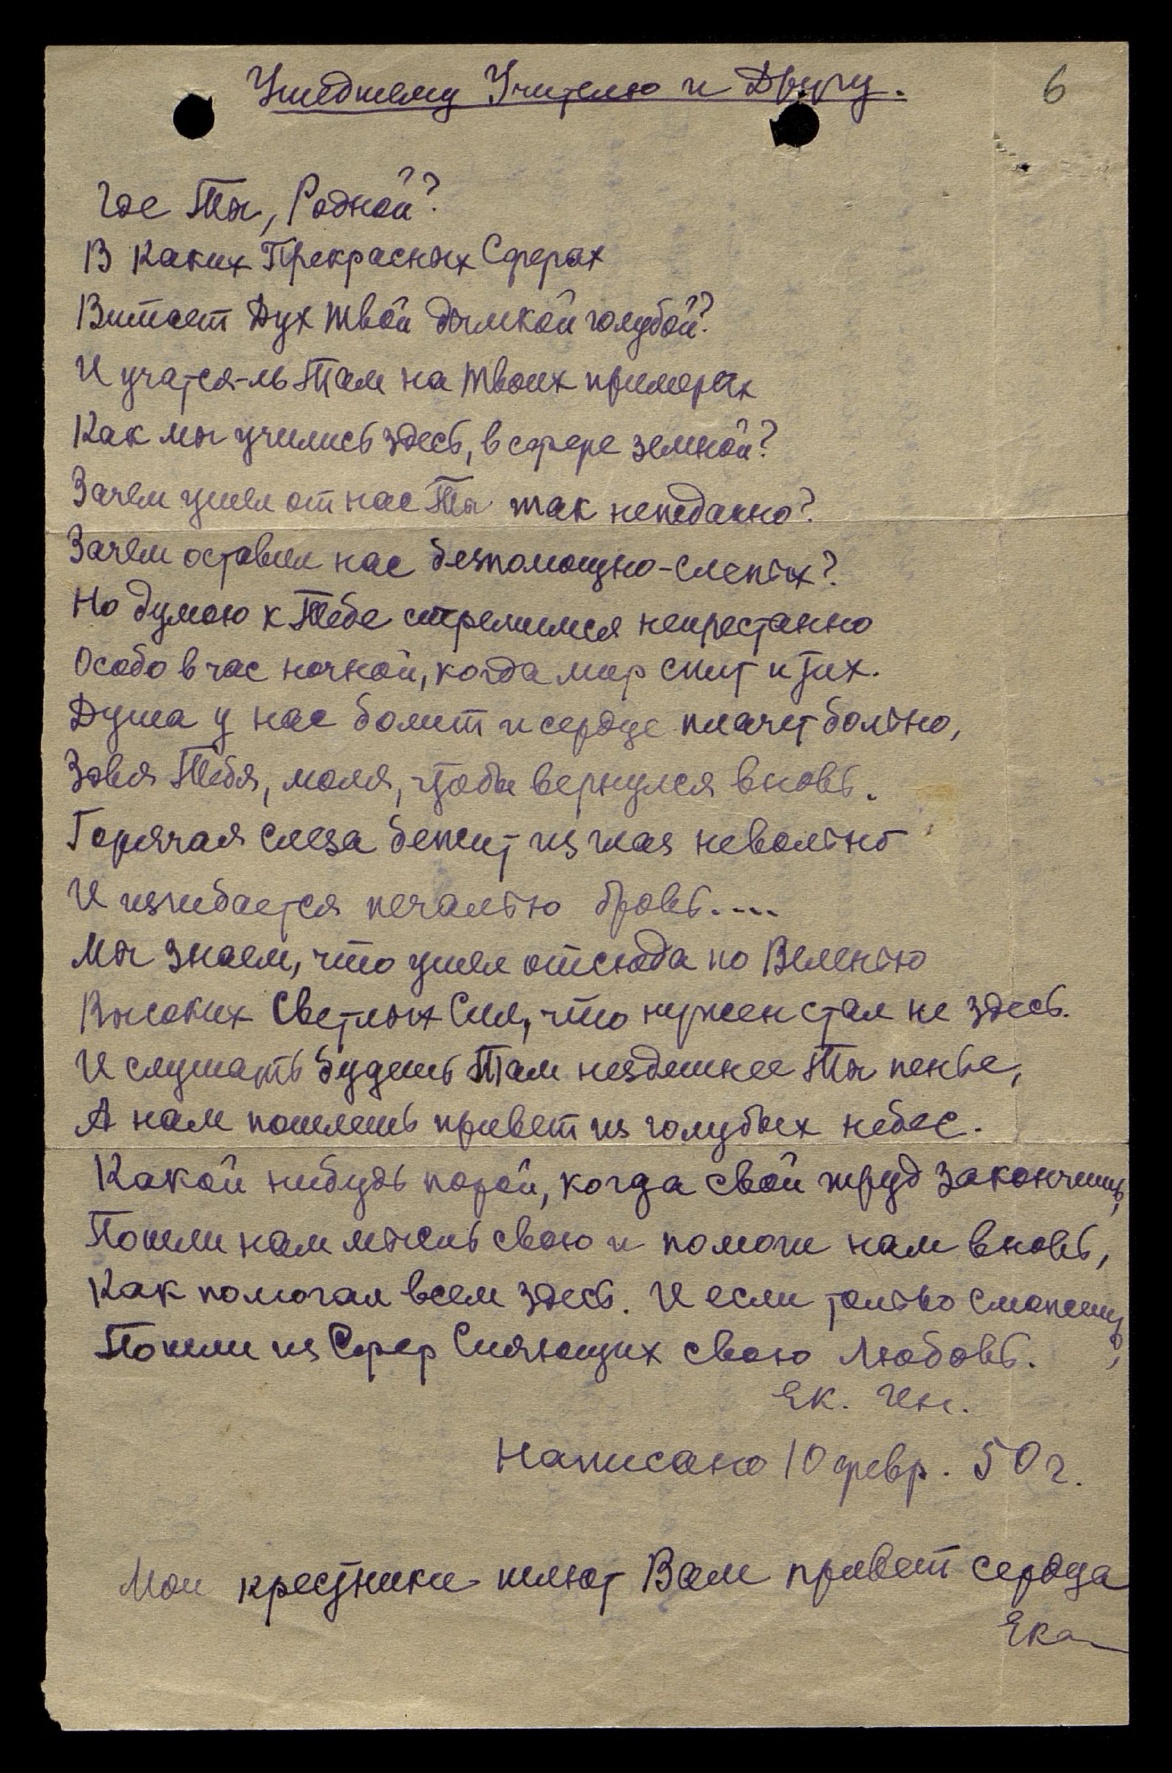 Ушедшему Учителю и Другу.
6
Где Ты, Родной?
В каких Прекрасных Сферах
Витает Дух твой дымкой голубой?
И учатся-ль Там на твоих примерах
Как мы учились здесь, в сфере земной?
Зачем ушел от нас Ты так нежданно?
Зачем оставил нас безпомощно-слепых?
Но думою к Тебе стремимся непрестанно
Особо в час ночной, когда мир спит и тих.
Душа у нас болит и сердце плачет больно,
Зовя Тебя, моля, чтобы вернулся вновь.
Горячая слеза бежит из глаз невольно
И изгибается печалью бровь....
Мы знаем, что ушел отсюда по Веленью
Высоких Светлых Сил, что нужен стал не здесь.
И слушать будешь Там нездешнее Ты пенье,
А нам пошлешь привет из голубых небес.
Какой нибудь порой, когда свой труд закончишь,
Пошли нам мысль свою и помоги нам вновь,
Как помогал всем здесь. И если только сможешь,
Пошли из Сфер Сияющих свою Любовь.
Ек. Ин.
Написано 10 февр. 50 г.
Мои крестники шлют Вам привет сердца
Ека